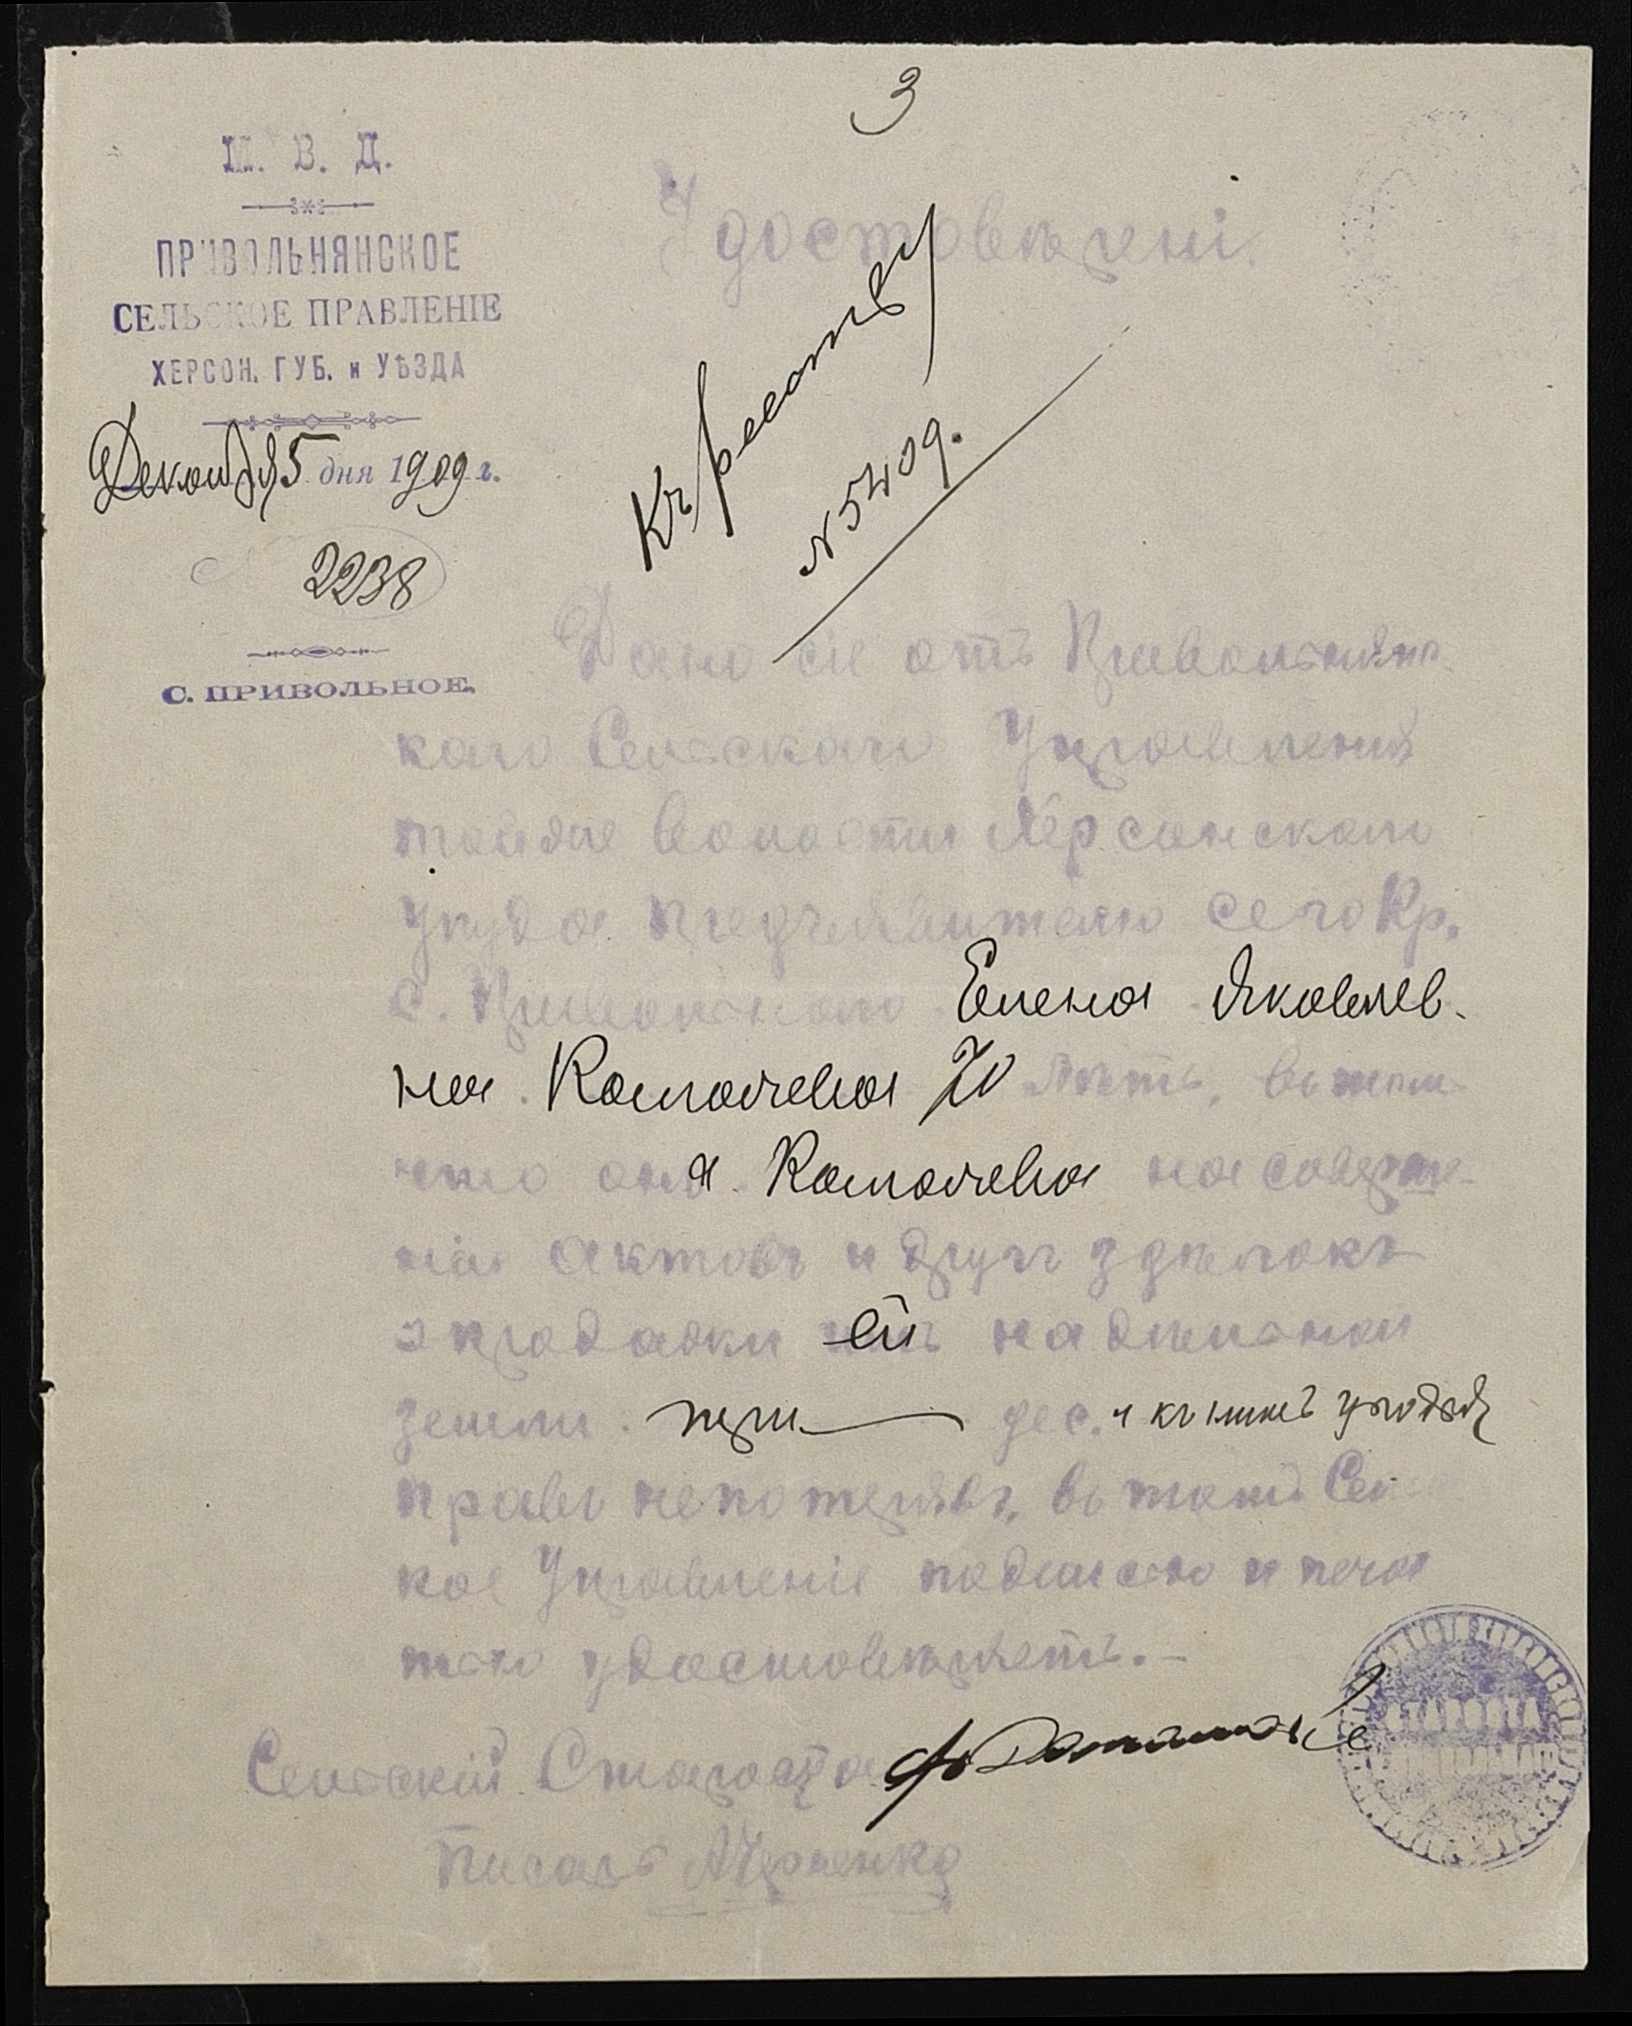 3
М. В. Д.
ПРИВОЛЬНЯНСКОЕ
СЕЛЬСКОЕ ПРАВЛЕНІЕ
ХЕРСОН. ГУБ. и УѢЗДА
Декабря 5 дня 1909 г.
2238
С. ПРИВОЛЬНОЕ.
Удостовѣрені
Къ реестру
№ 5409.
Дано сіе отъ Привольнянс
каго Сельскаго Управленія
тойже волости Херсонскаго
уѣзда предъявителю сего Кр.
с. Привольнаго Елена Яковлев-
на 70 лѣтъ, въ том
что она на соверше-
нія актовъ и друг здѣлокъ
о продажи ей надѣльной
земли три дес. и къ нимъ угодья
права не потерявъ, въ томъ Сел
кое Управленіе подписью и печа
тью удостовѣряетъ.-
Сельскій Староста
Писарь
СТАРОСТА